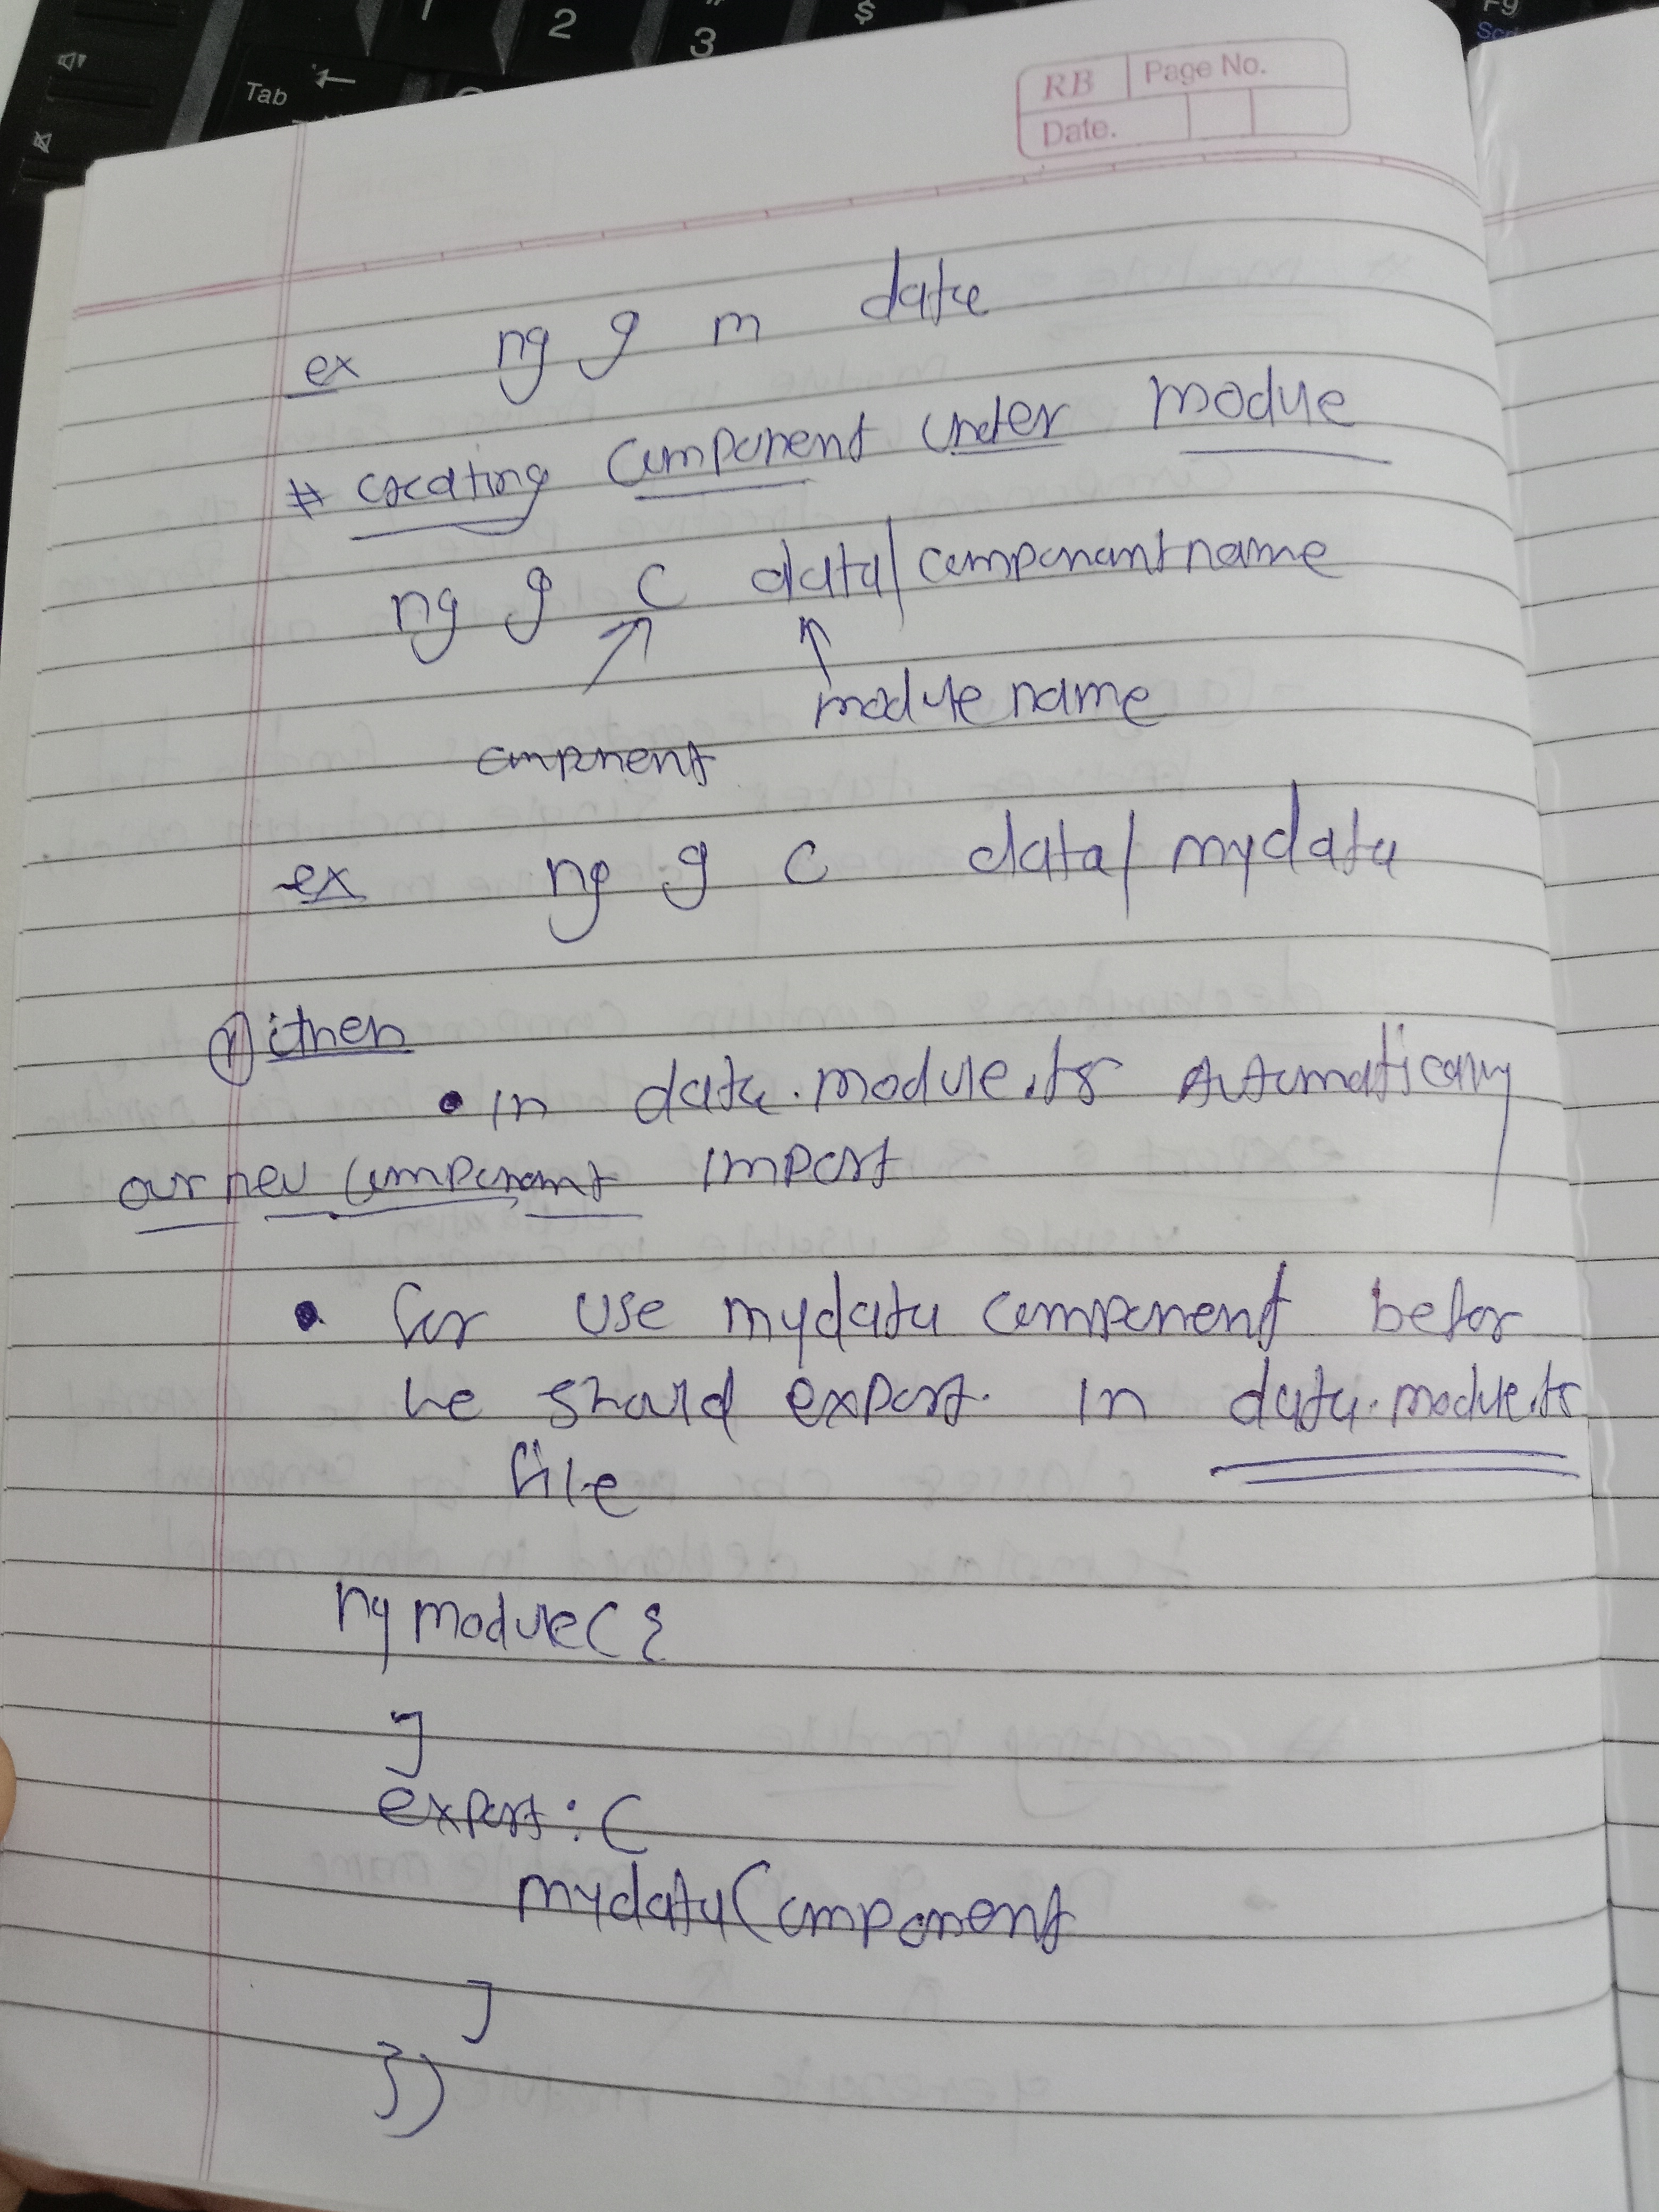 1
2
3
$
F9
Tab
RB Page No.
Date.
ex ng g m data
# creating component under module
ng g c data/componantname
module name
component
ex ng g c data/mydata
then
• in data.module.ts Automatically
our new componant import
• for use mydata component befor
we should export in data.module.ts
file
ngmodule({
]
export: [
mydataComponent
]
})